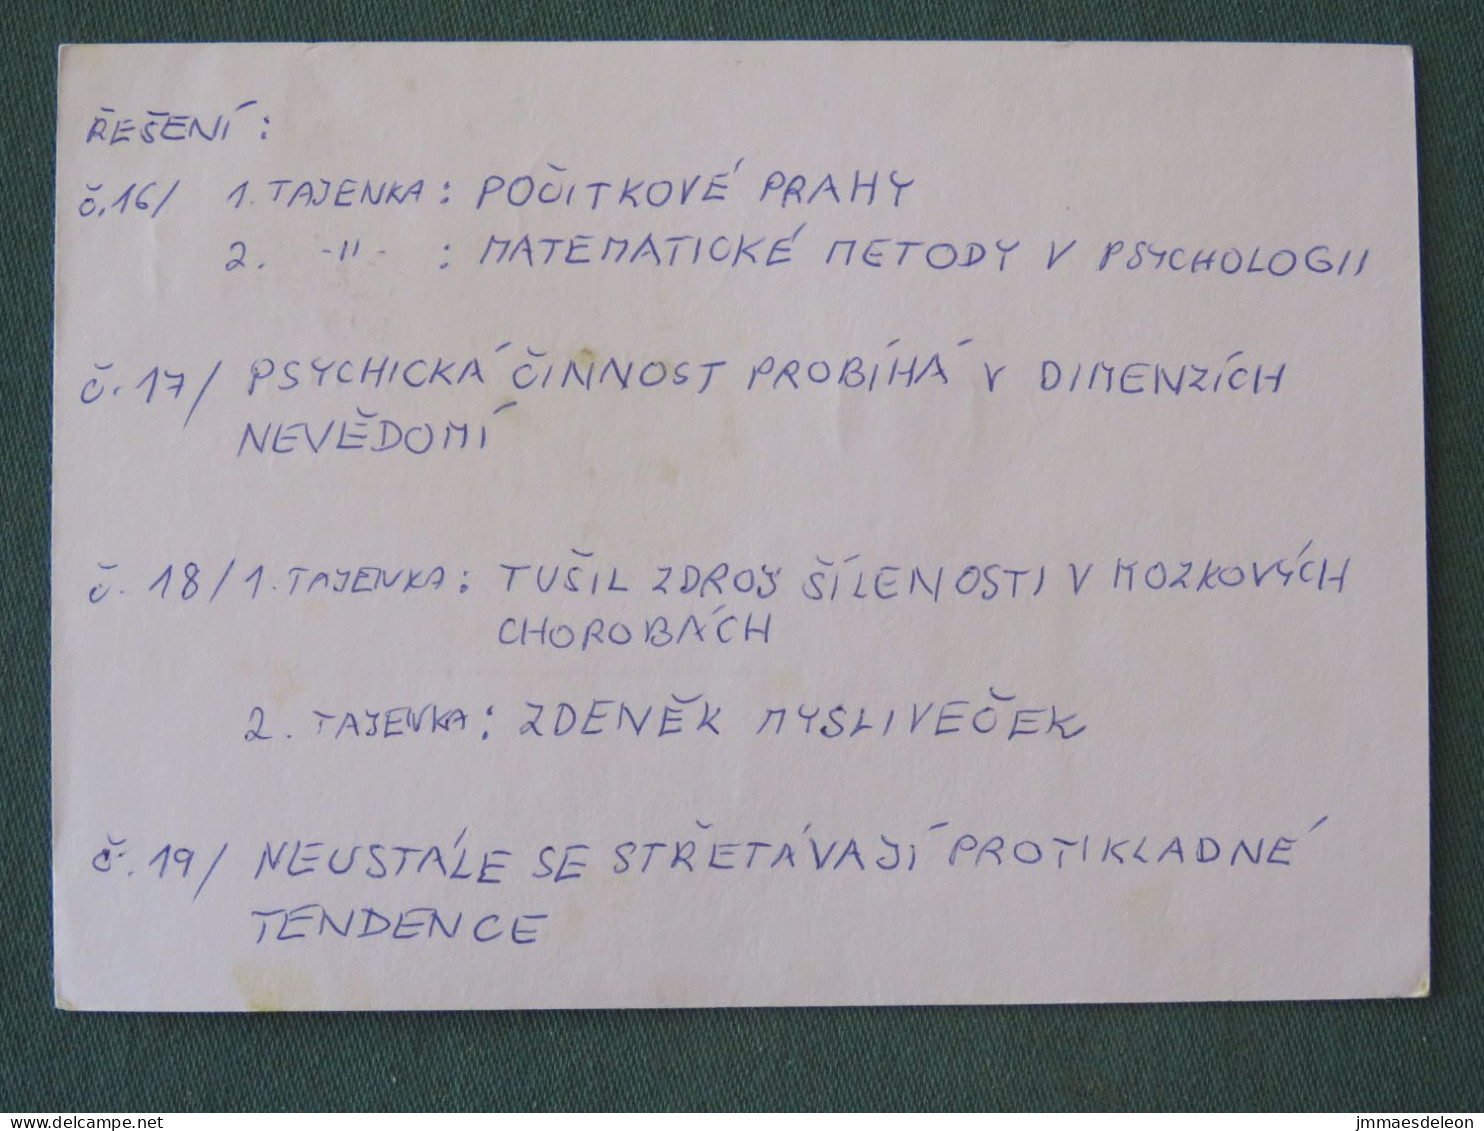 ŘEŠENÍ:
č.16/ 1. TAJENKA: POČITKOVÉ PRAHY
2. -"- : MATEMATICKÉ METODY V PSYCHOLOGII
č.17/ PSYCHICKÁ ČINNOST PROBÍHÁ V DIMENZÍCH
NEVĚDOMÍ
č.18/1. TAJENKA: TUŠIL ZDROJ ŠÍLENOSTI V MOZKOVÝCH
CHOROBÁCH
2. TAJENKA: ZDENĚK MYSLIVEČEK
č.19/ NEUSTÁLE SE STŘETÁVAJÍ PROTIKLADNÉ
TENDENCE
www.delcampe.net
jmmaesdeleon